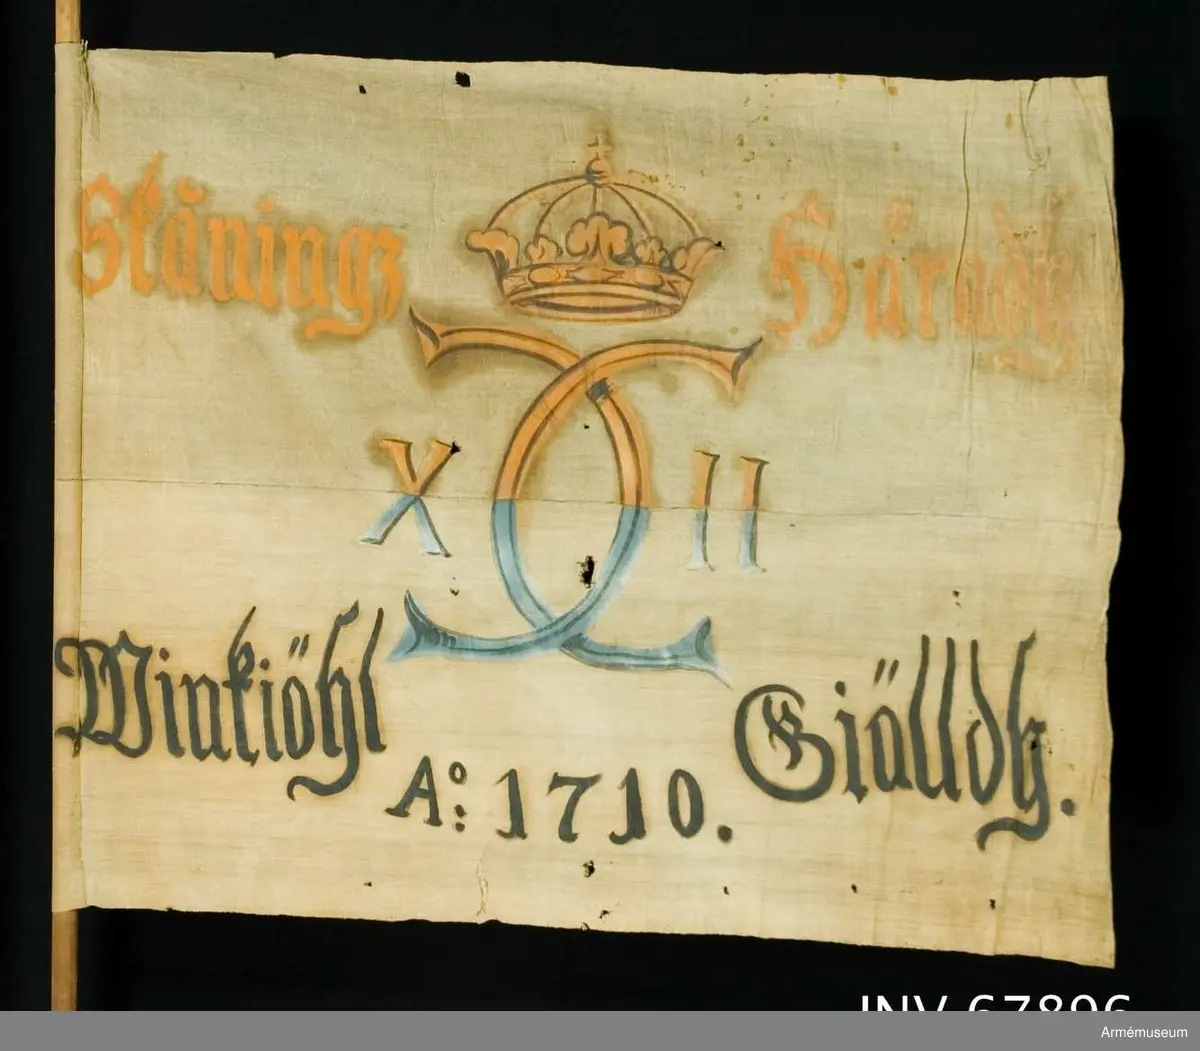 Skånings Häradz
X CC II
Winkiöhl Giälldz.
Ao: 1710.
INV 67896
Armémuseum